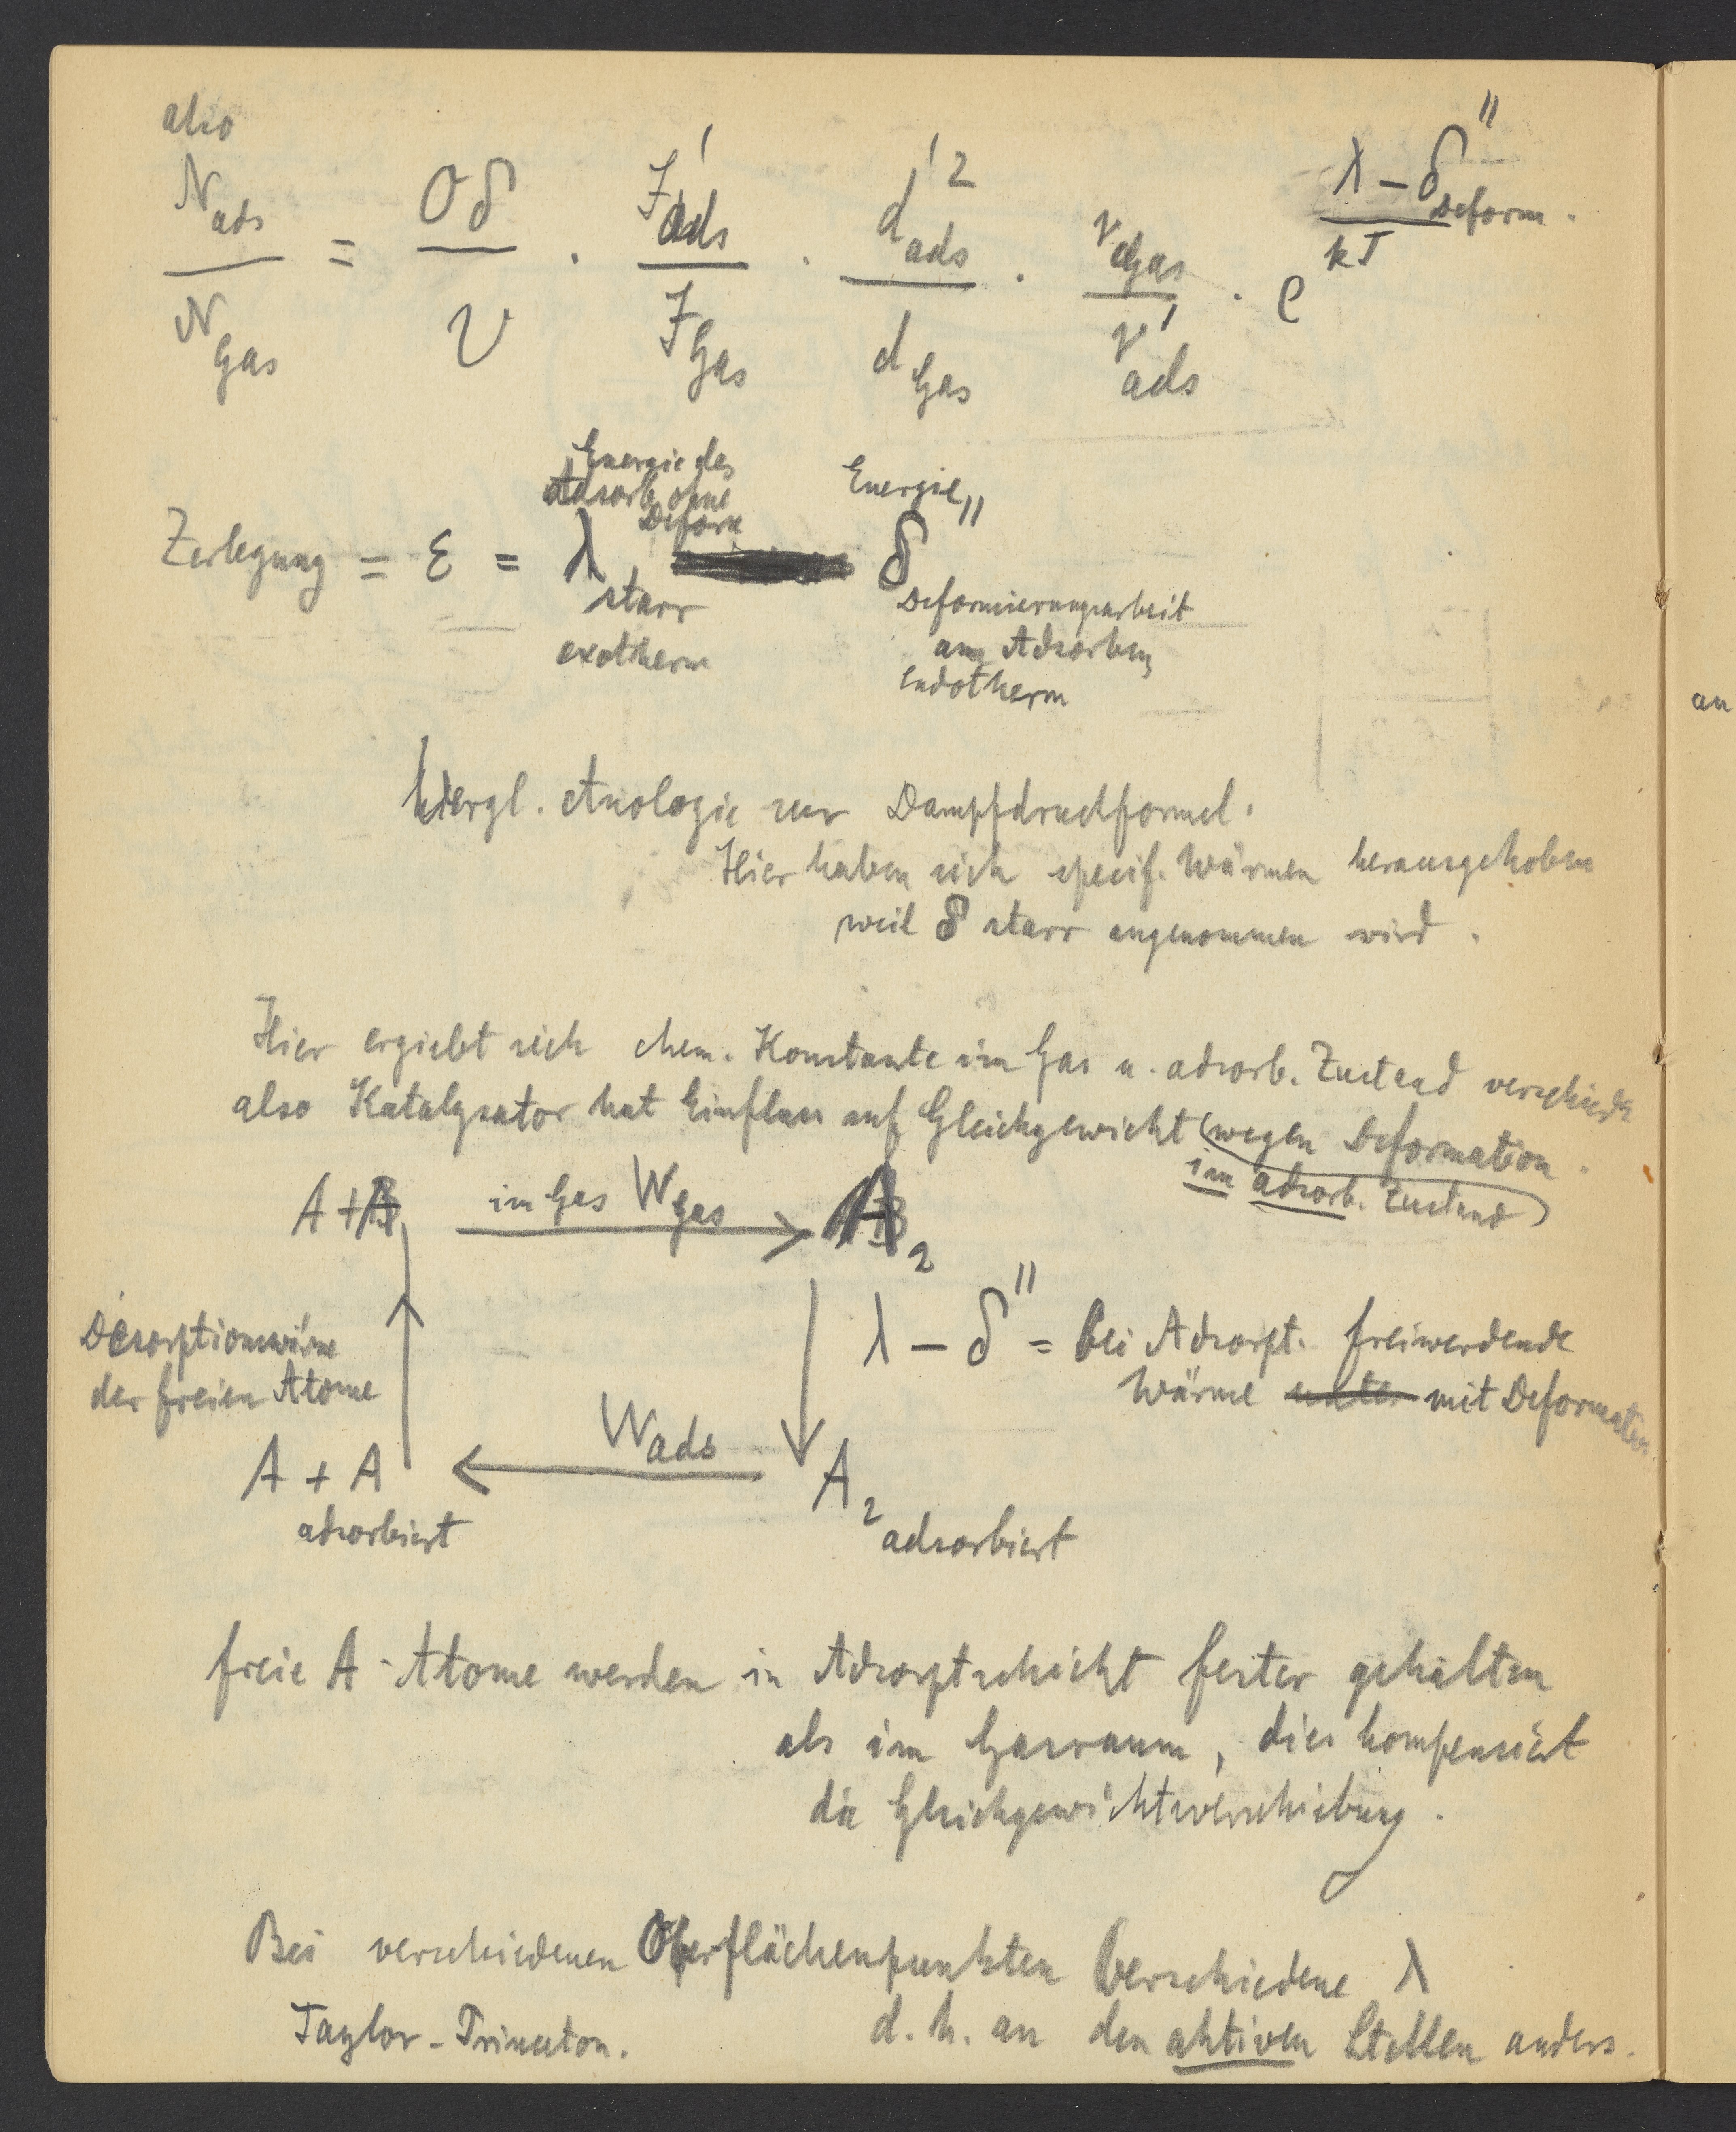 also
N_ads / N_Gas = Oδ / V · J'_ads / J_Gas · d'²_ads / d_Gas · ν_Gas / ν'_ads · e^((λ − δ''_Deform.) / kT)
Energie des
Adsorb. ohne
Deform
Energie
Zerlegung = ε = λ δ''
starr
exotherm
Deformierungsarbeit
am Adsorben,
endotherm
Vergl. Anologie zur Dampfdruckformel.
Hier haben sich specif. Wärmen herausgehoben
weil δ starr angenommen wird.
Hier ergiebt sich chem. Konstante im Gas u. adsorb. Zustand verschieden
also Katalysator hat Einfluss auf Gleichgewicht (wegen Deformation.
im adsorb. Zustand)
A + A im Gas W_Gas A₂
λ − δ'' = bei Adsorpt. freiwerdende
Wärme unter mit Deformation
Desorptionswärme
der freien Atome
W_ads
A + A
adsorbiert
A₂ adsorbiert
freie A-Atome werden in Adsorptschicht fester gehalten
als im Gasraum, dies kompensiert
die Gleichgewichtsverschiebung.
Bei verschiedenen Oberflächenpunkten verschiedene λ
Taylor - Princeton. d. h. an den aktiven Stellen anders.
an